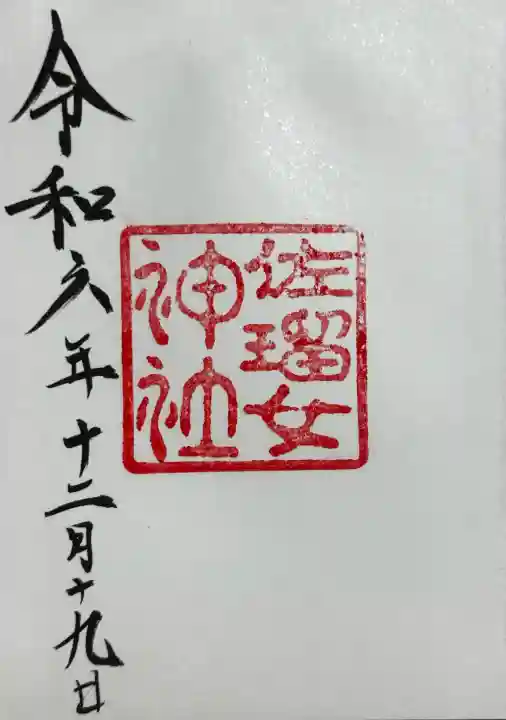 佐瑠女
神社
令和六年十二月十九日